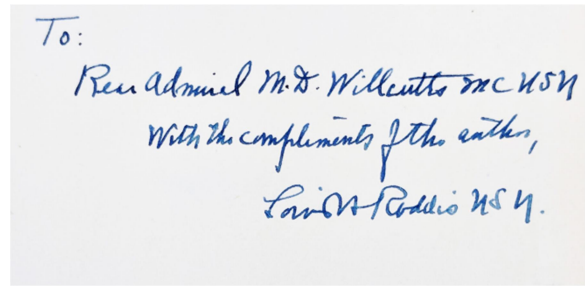 To:
Rear Admiral M.D. Willcutts MC USN
With the compliments of the author,
Louis H Roddis USN.